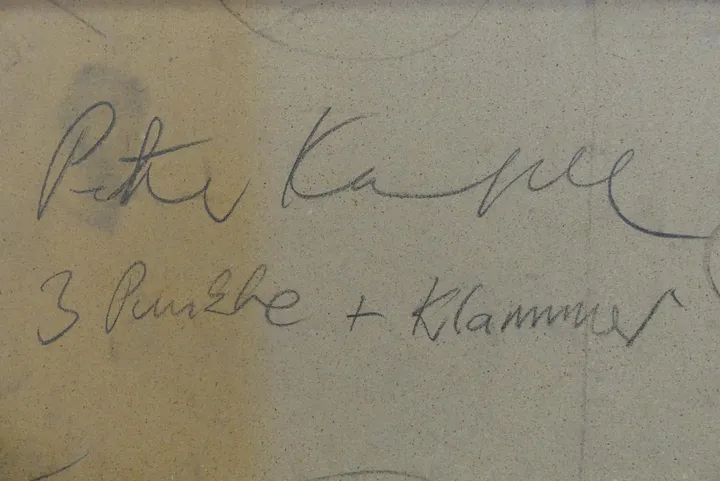 Peter
3 Punkte + Klammer